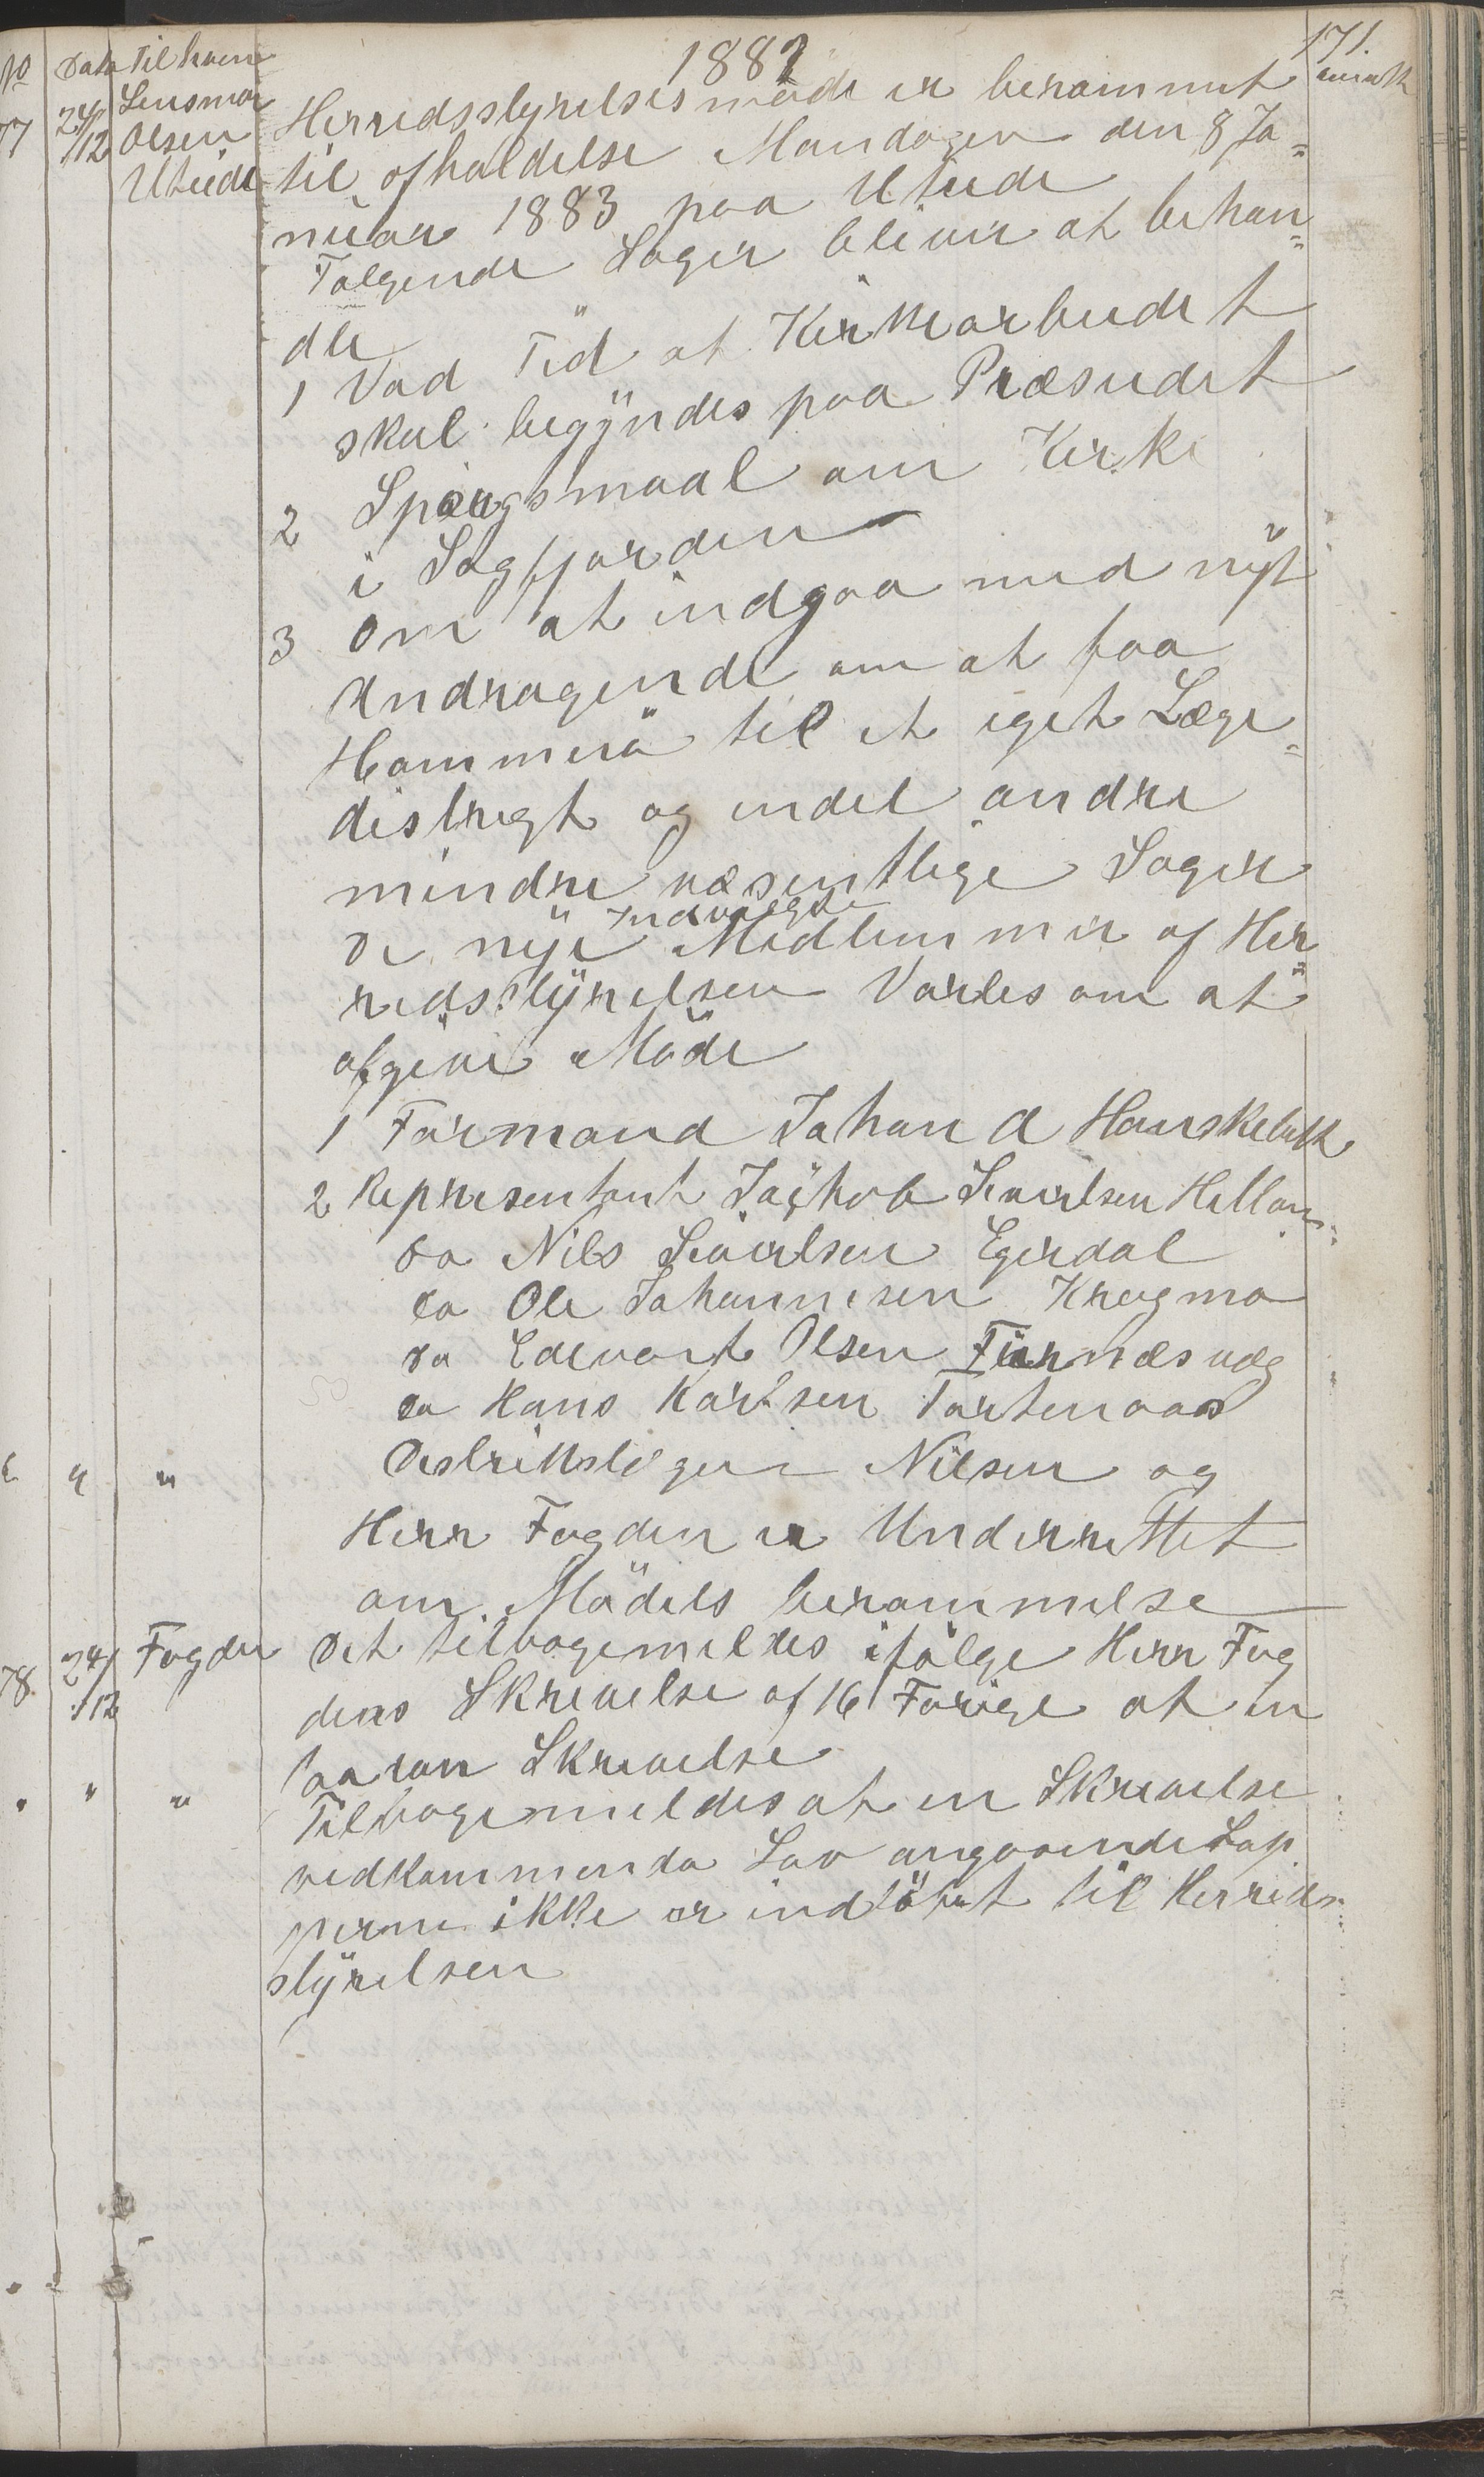 1882
171.
No Dato Til hvem
anmrk
77 24/12 Lensman Olsen Uteide
Herredsstyrelsesmøde er berammet
til afholdelse Mandagen den 8 Ja=
nuar 1883 paa Uteide
Følgende Sager bliver at behan=
dle
1 Vad Tid at Kirkearbeidet
skal begÿndes paa Præsteidet
2 Spørgsmaal om Kirke
i Sagfjorden
3 Om at indgaa med nÿt
Andragende om at faa
Hammerö til et eget Læge=
distrigt og endel andre
mindre væsentlige Sager
De nÿe Indvalgte Medlemmer af Her=
redsstÿrelsen Varles om at
afgive Möde
1 Formand Johan A Hanskebakk
2 Representant Jakob Sivertsen Helland
do Nils Sivertsen Egerdal
do Ole Johannesen Kragmo
do Edevart Olsen Furnæsvæg
do Hans Karlsen Tortenaas
" " "
Distriktslegen Nilsen og
Herr Fogden er Underrettet
om Mödets berammelse
78. 24/12 Fogden
Det tilbagemeldes ifölge Herr Fog
dens Skrivelse af 16 Forige at en
saadan Skrivelse
" " "
Tilbagemeldes at en Skrivelse
vedkommende Lov angaaende Lap
perne ikke er indløbet til Herreds
stÿrelsen